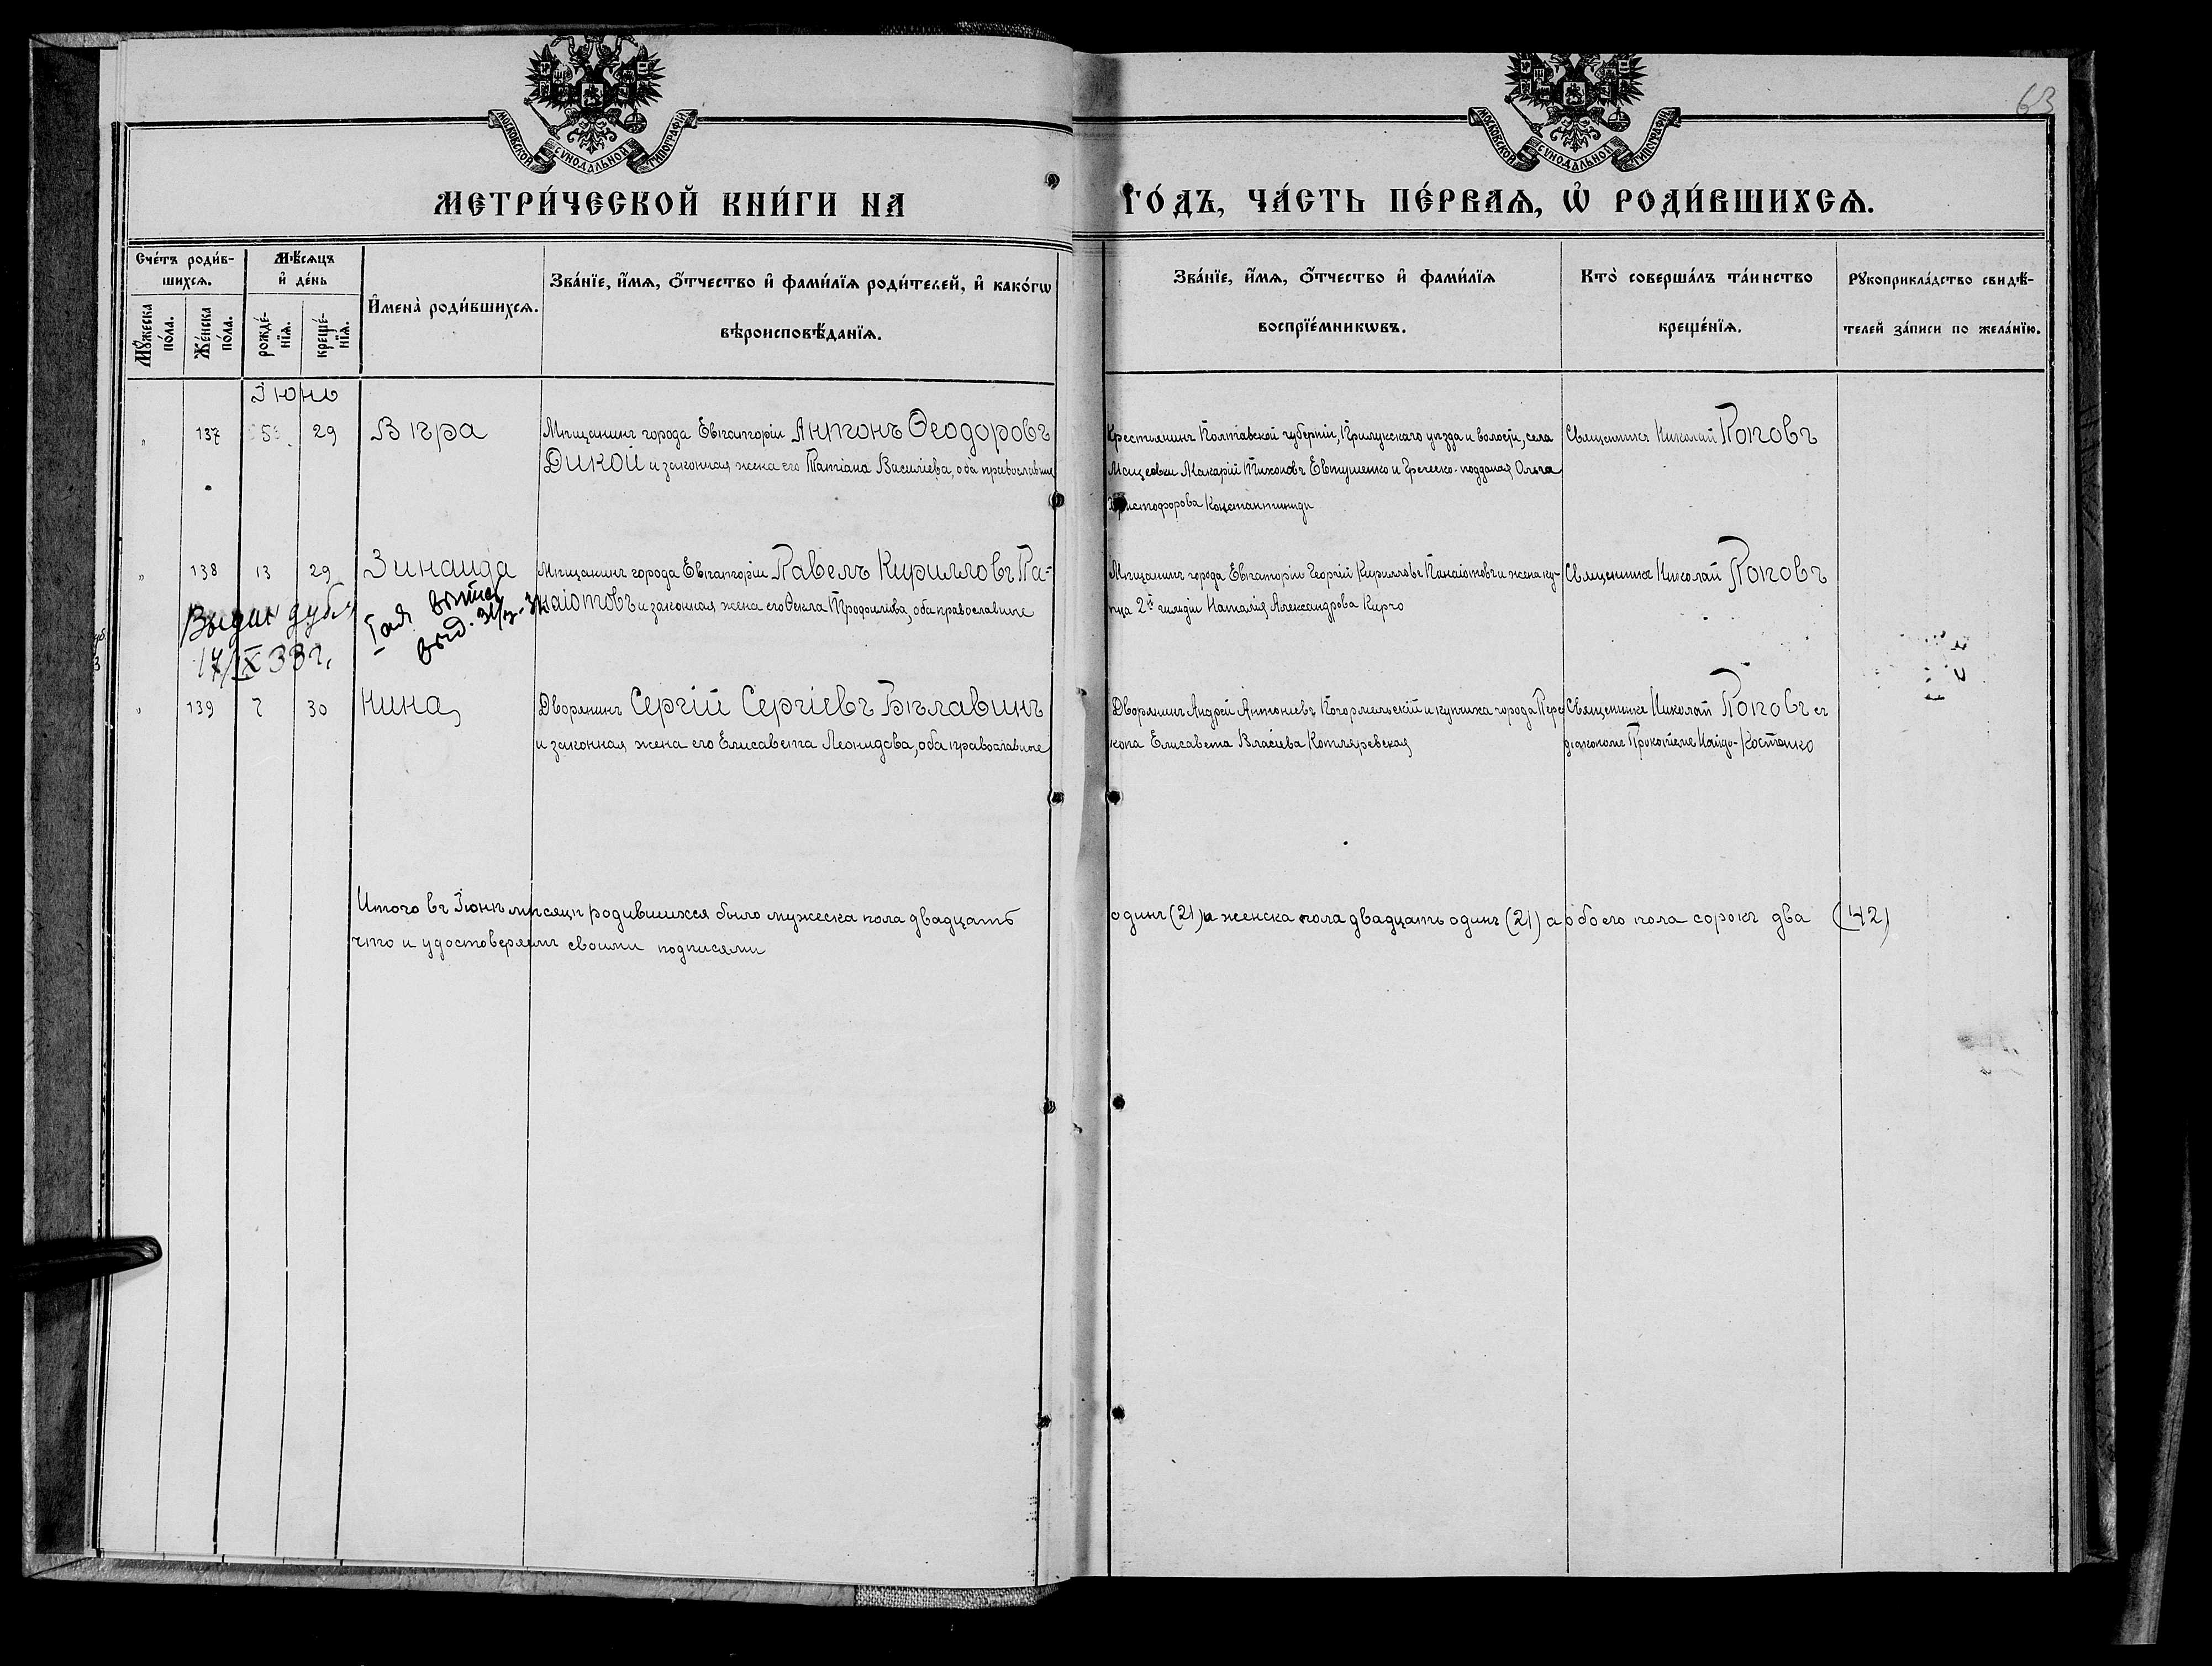 63
МОСКОВСКОЙ СѴНОДАЛЬНОЙ ТИПОГРАФІИ
МОСКОВСКОЙ СѴНОДАЛЬНОЙ ТИПОГРАФІИ
МЕТРИ́ЧЕСКОЙ КНИ́ГИ НА ГО́ДЪ, ЧА́СТЬ ПЕ́РВАѦ, Ѡ҆ РОДИ́ВШИХСѦ.
Сче́тъ роди́в-
шихсѧ.
Мѣ́сѧцъ
и҆ де́нь
Мꙋ́жеска
по́ла.
Же́нска
по́ла.
рожде́-
нїѧ.
креще́-
нїѧ.
И҆мена̀ роди́вшихсѧ.
Зва́нїе, и҆́мѧ, ѻ҆́тчество и҆ фами́лїѧ роди́телей, и҆ како́гѡ
вѣроисповѣ́данїѧ.
Зва́нїе, и҆́мѧ, ѻ҆́тчество и҆ фами́лїѧ
воспрїе́мникѡвъ.
Кто̀ соверша́лъ та́инство
креще́нїѧ.
Рꙋкоприкла́дство свидѣ́-
телей за́писи по жела́нїю.
Іюнь
" 137 5 29 Вѣра
Мѣщанинъ города Евпаторіи Антонъ Ѳеодоровъ
Дикой и законная жена его Татіана Васильева, оба православные
Крестьянинъ Полтавской губерніи, Прилукскаго уѣзда и волости, села
Мацѣевки Макарій Тихоновъ Евтушенко и Греческо-подданая Ольга
Христофорова Константиниди
Священникъ Николай Поповъ
" 138 13 29 Зинаида
Мѣщанинъ города Евпаторіи Павелъ Кирилловъ Па-
наіотовъ и законная жена его Ѳекла Трофимова, оба православные
Мѣщанинъ города Евпаторіи Георгій Кирилловъ Панаіотовъ и жена ку-
пца 2й гильдіи Наталія Александрова Кирчо
Священникъ Николай Поповъ
Выдан дубл
17/IX 33 г.
" 139 7 30 Нина
Дворянинъ Сергій Сергіевъ Бѣлавинъ
и законная жена его Елисавета Леонидова, оба православные
Дворянинъ Андрей Антоніевъ Погорѣльскій и купчиха города Пере
копа Елисавета Власіева Котляревская
Священникъ Николай Поповъ съ
діакономъ Прокопіемъ Найдо-Костанко
Итого въ Іюнѣ мѣсяцѣ родившихся было мужеска пола двадцать одинъ (21) и женска пола двадцать одинъ (21) а обоего пола сорокъ два (42)
что и удостовѣряемъ своими подписями